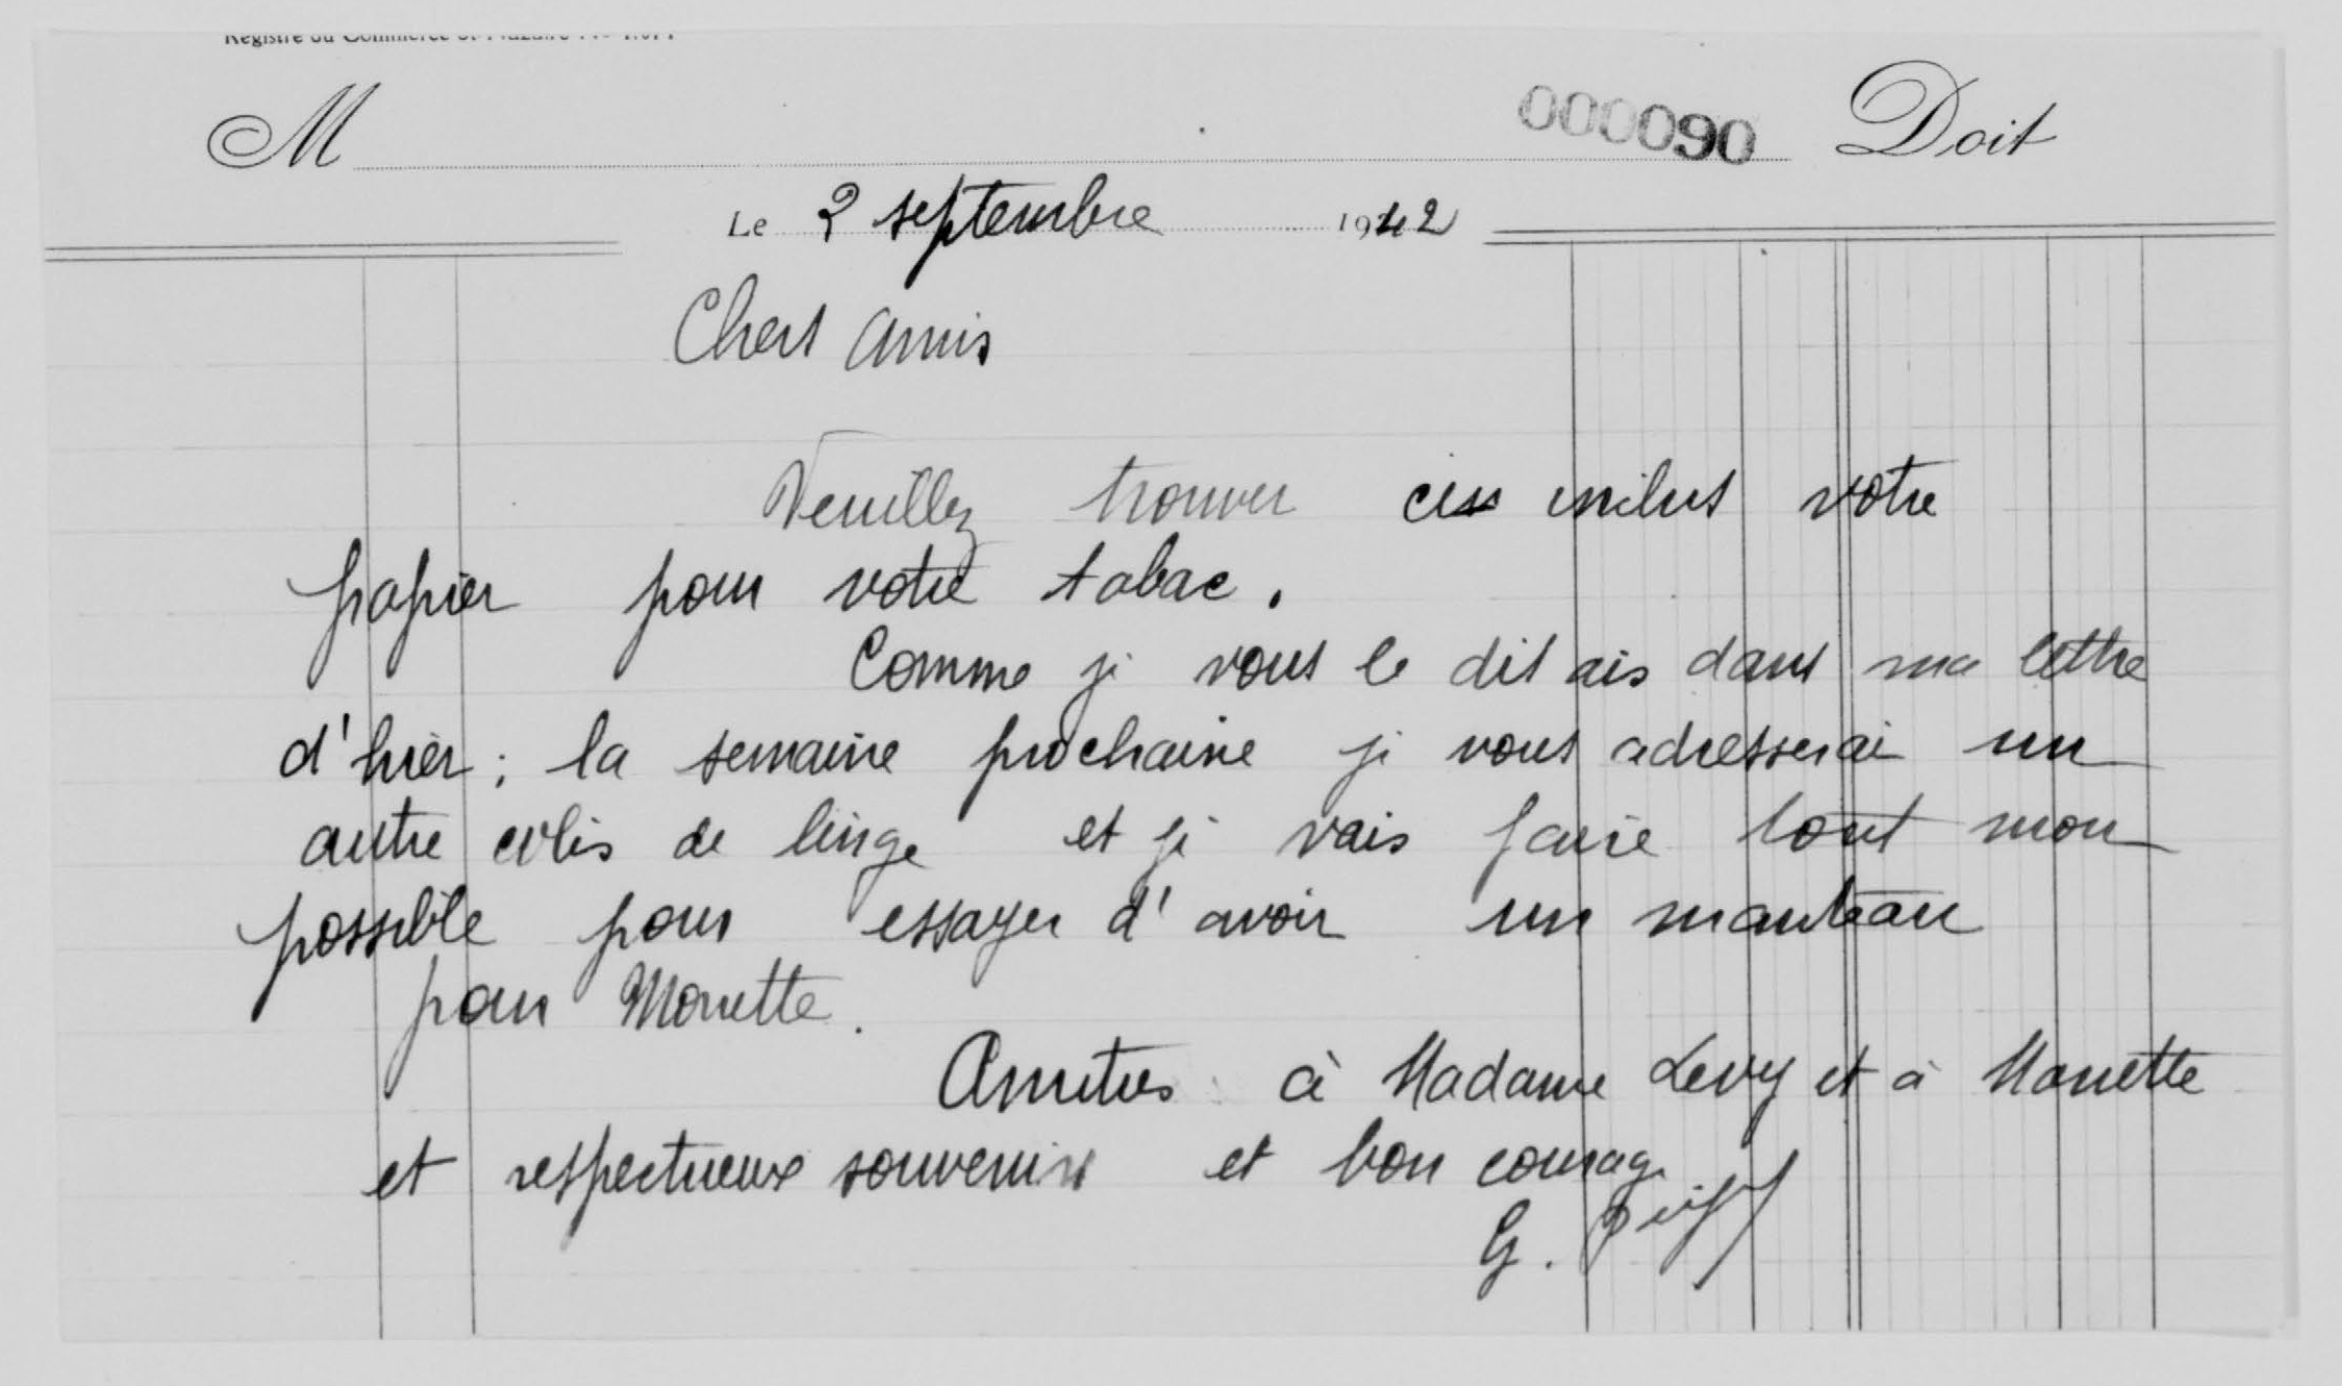 Registre du Commerce St-Nazaire
M 000090 Doit
Le 2 septembre 1942
Chers amis
Veuillez trouver ci inclus votre
papier pour votre tabac.
Comme je vous le disais dans ma lettre
d'hier ; la semaine prochaine je vous adresserai un
autre colis de linge et je vais faire tout mon
possible pour essayer d'avoir un manteau
pour Monette.
Amities à Madame Levy et à Monette
et respectueux souvenirs et bon courage
G.